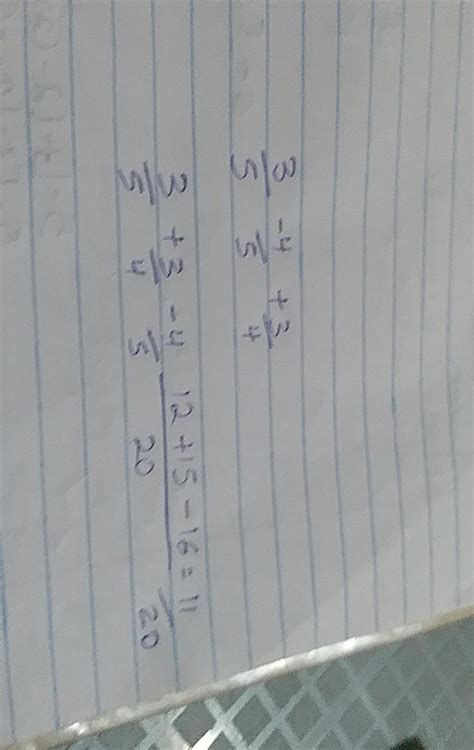 3/5 -4/5 +3/4
3/5 +3/4 -4/5 12+15-16/20 = 11/20